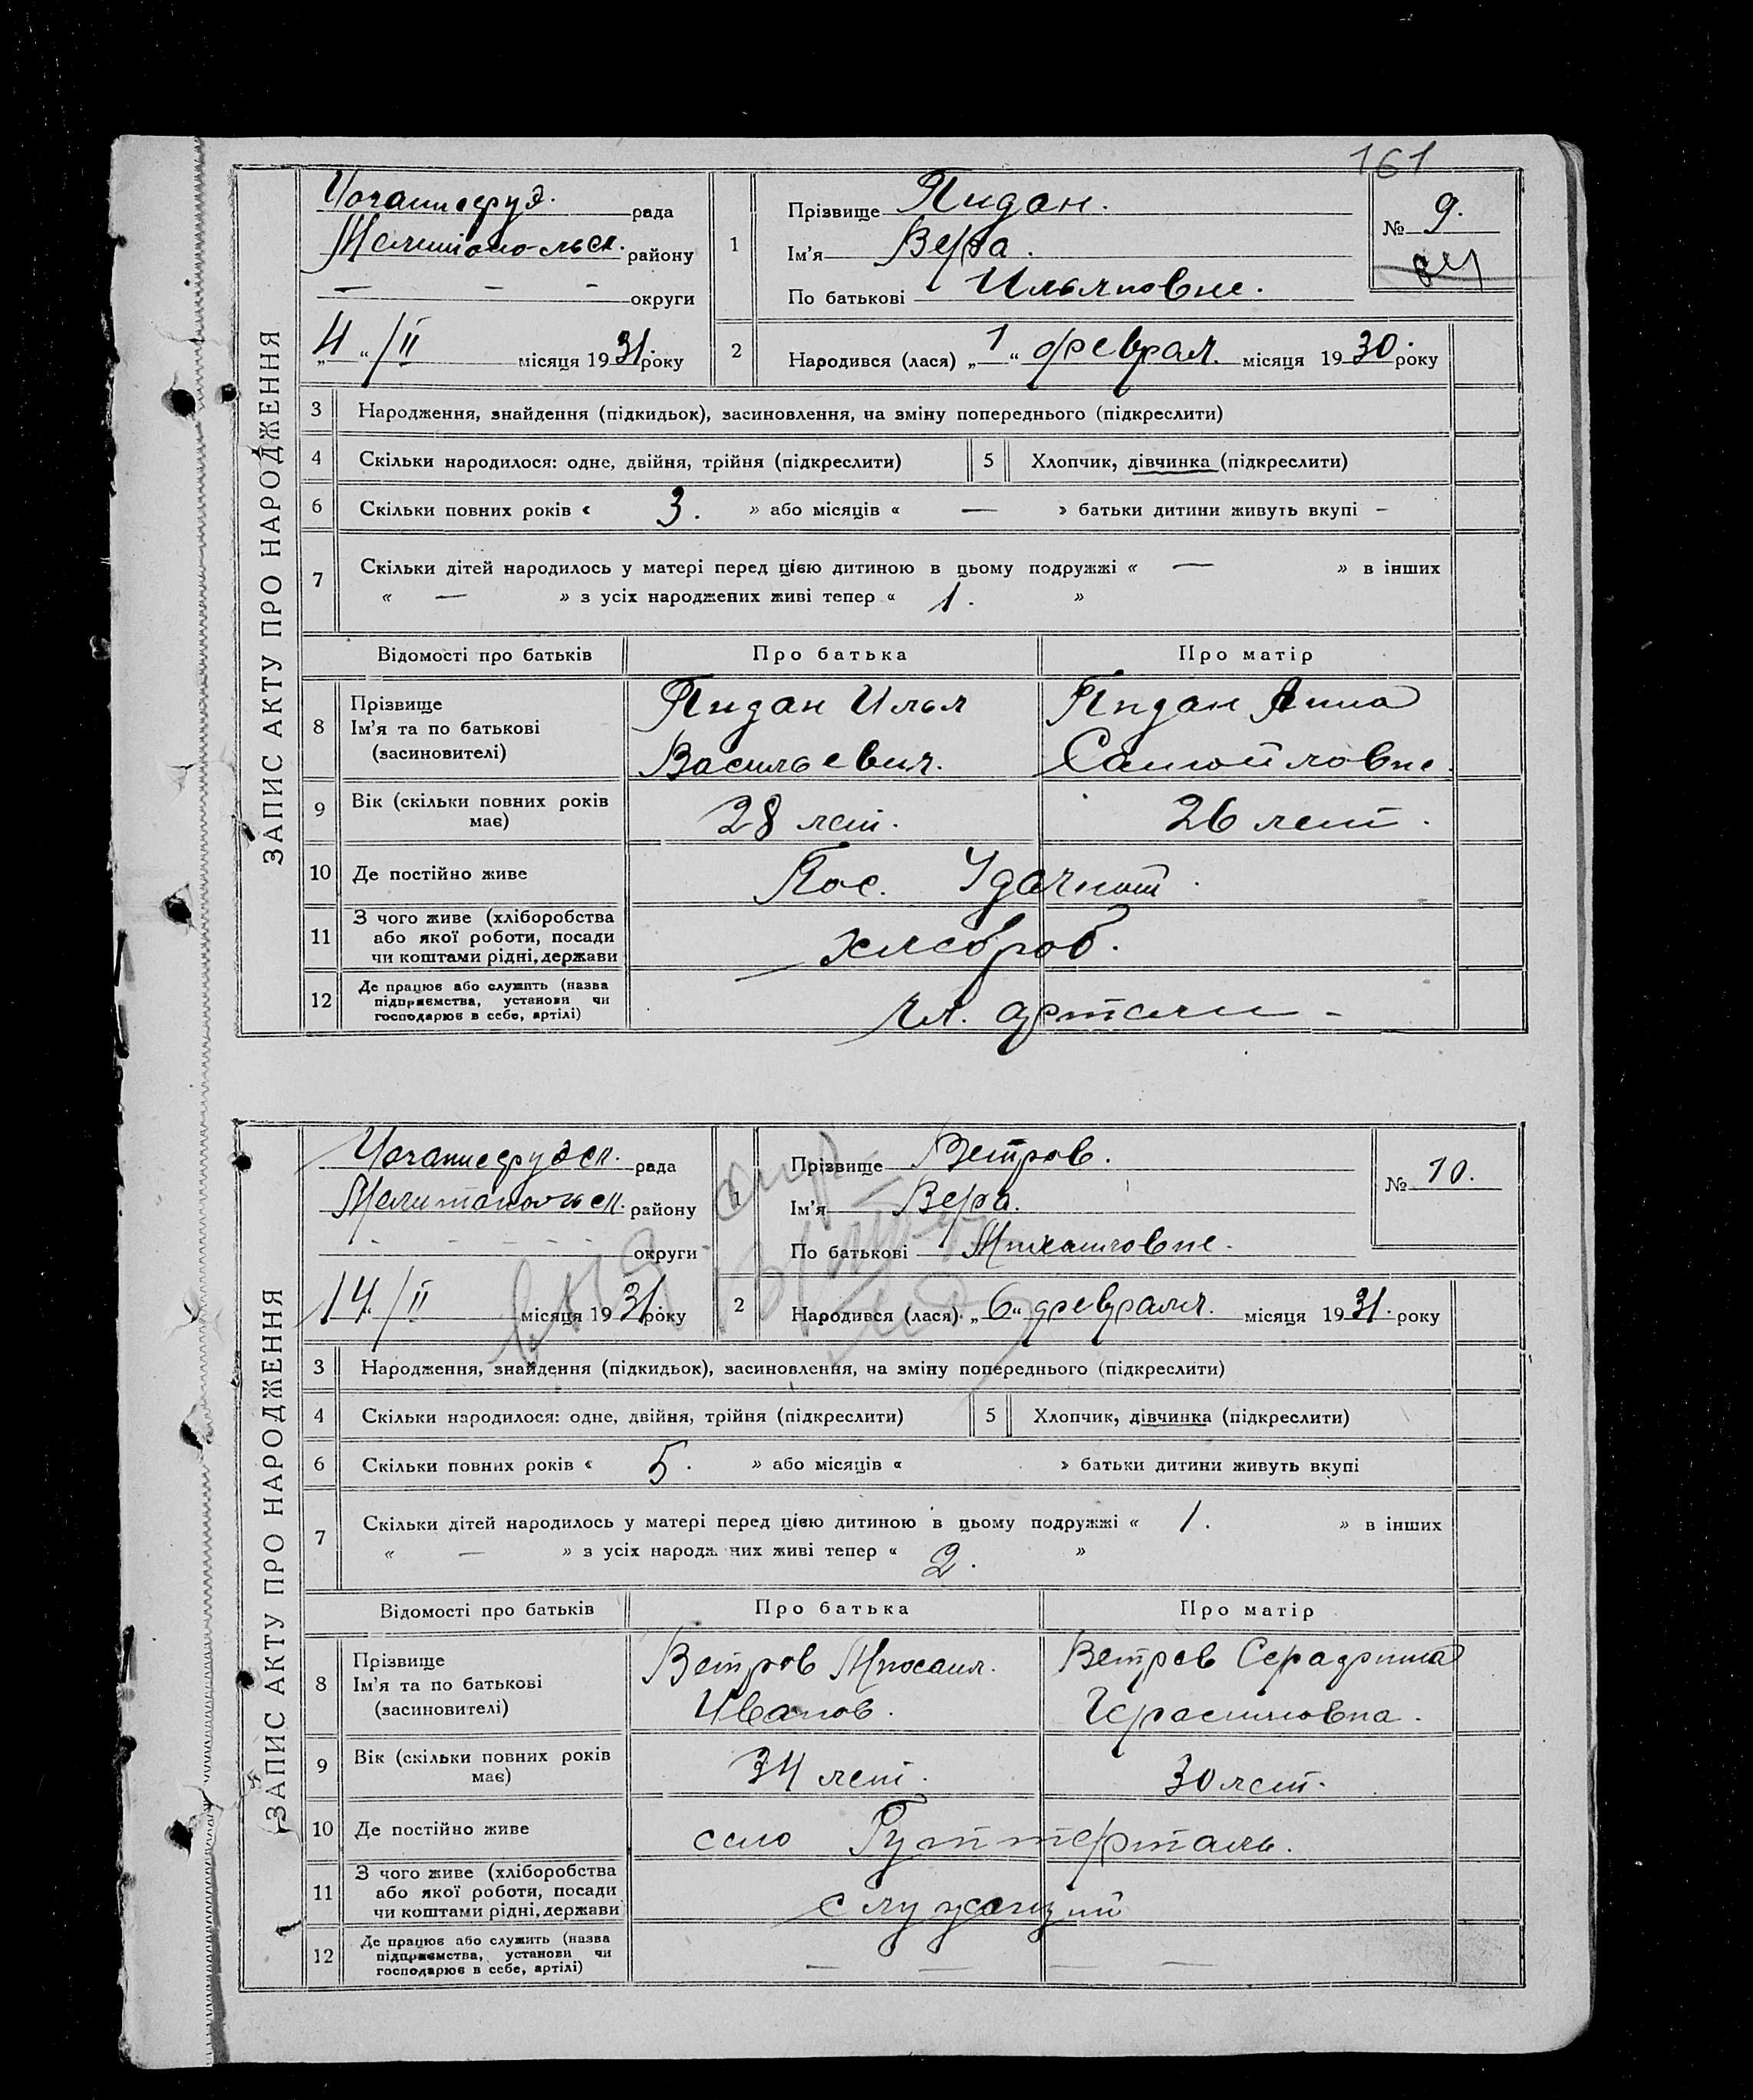 161
ЗАПИС АКТУ ПРО НАРОДЖЕННЯ
рада
району
— — — округи
„4“ /II місяця 1931. року
1
Прізвище Пидан.
Ім'я Вера.
По батькові Ильяновне.
№ 9.
2 Народився (лася) „1“ феврал. місяця 1930. року
3 Народження, знайдення (підкидьок), засиновлення, на зміну попереднього (підкреслити)
4 Скільки народилося: одне, двійня, трійня (підкреслити) 5 Хлопчик, дівчинка (підкреслити)
6 Скільки повних років « 3. » або місяців « — » батьки дитини живуть вкупі –
7 Скільки дітей народилось у матері перед цією дитиною в цьому подружжі « — » в інших
« — » з усіх народжених живі тепер « 1. »
Відомості про батьків Про батька Про матір
8 Прізвище Ім'я та по батькові (засиновителі)
Пидан Илья Васильевич.
Пидан Анна Самойловне.
9 Вік (скільки повних років має) 28 лет. 26 лет.
10 Де постійно живе Пос. Удачной.
11 З чого живе (хліборобства або якої роботи, посади чи коштами рідні, держави хлеброб.
12 Де працює або служить (назва підприємства, установи чи господарює в себе, артілі) чл. артели –
ЗАПИС АКТУ ПРО НАРОДЖЕННЯ
рада
Мелитопольск. району
округи
14 /II місяця 1931. року
1
Прізвище Ветров.
Ім'я Вера.
По батькові Михайловне.
№ 10.
2 Народився (лася) „6“ февраля. місяця 1931. року
3 Народження, знайдення (підкидьок), засиновлення, на зміну попереднього (підкреслити)
4 Скільки народилося: одне, двійня, трійня (підкреслити) 5 Хлопчик, дівчинка (підкреслити)
6 Скільки повних років « 5. » або місяців « » батьки дитини живуть вкупі
7 Скільки дітей народилось у матері перед цією дитиною в цьому подружжі « 1. » в інших
« — » з усіх народж них живі тепер « 2. »
Відомості про батьків Про батька Про матір
8 Прізвище Ім'я та по батькові (засиновителі)
Ветров Михаил. Иванов.
Ветров Серафима Герасимовна.
9 Вік (скільки повних років має) 34 лет. 30 лет.
10 Де постійно живе село Гуттерталь.
11 З чого живе (хліборобства або якої роботи, посади чи коштами рідні, держави служащий
12 Де працює або служить (назва підприємства, установи чи господарює в себе, артілі) — — — —